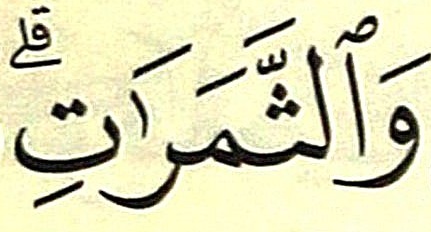 وَٱلثَّمَرَٰتِۗ